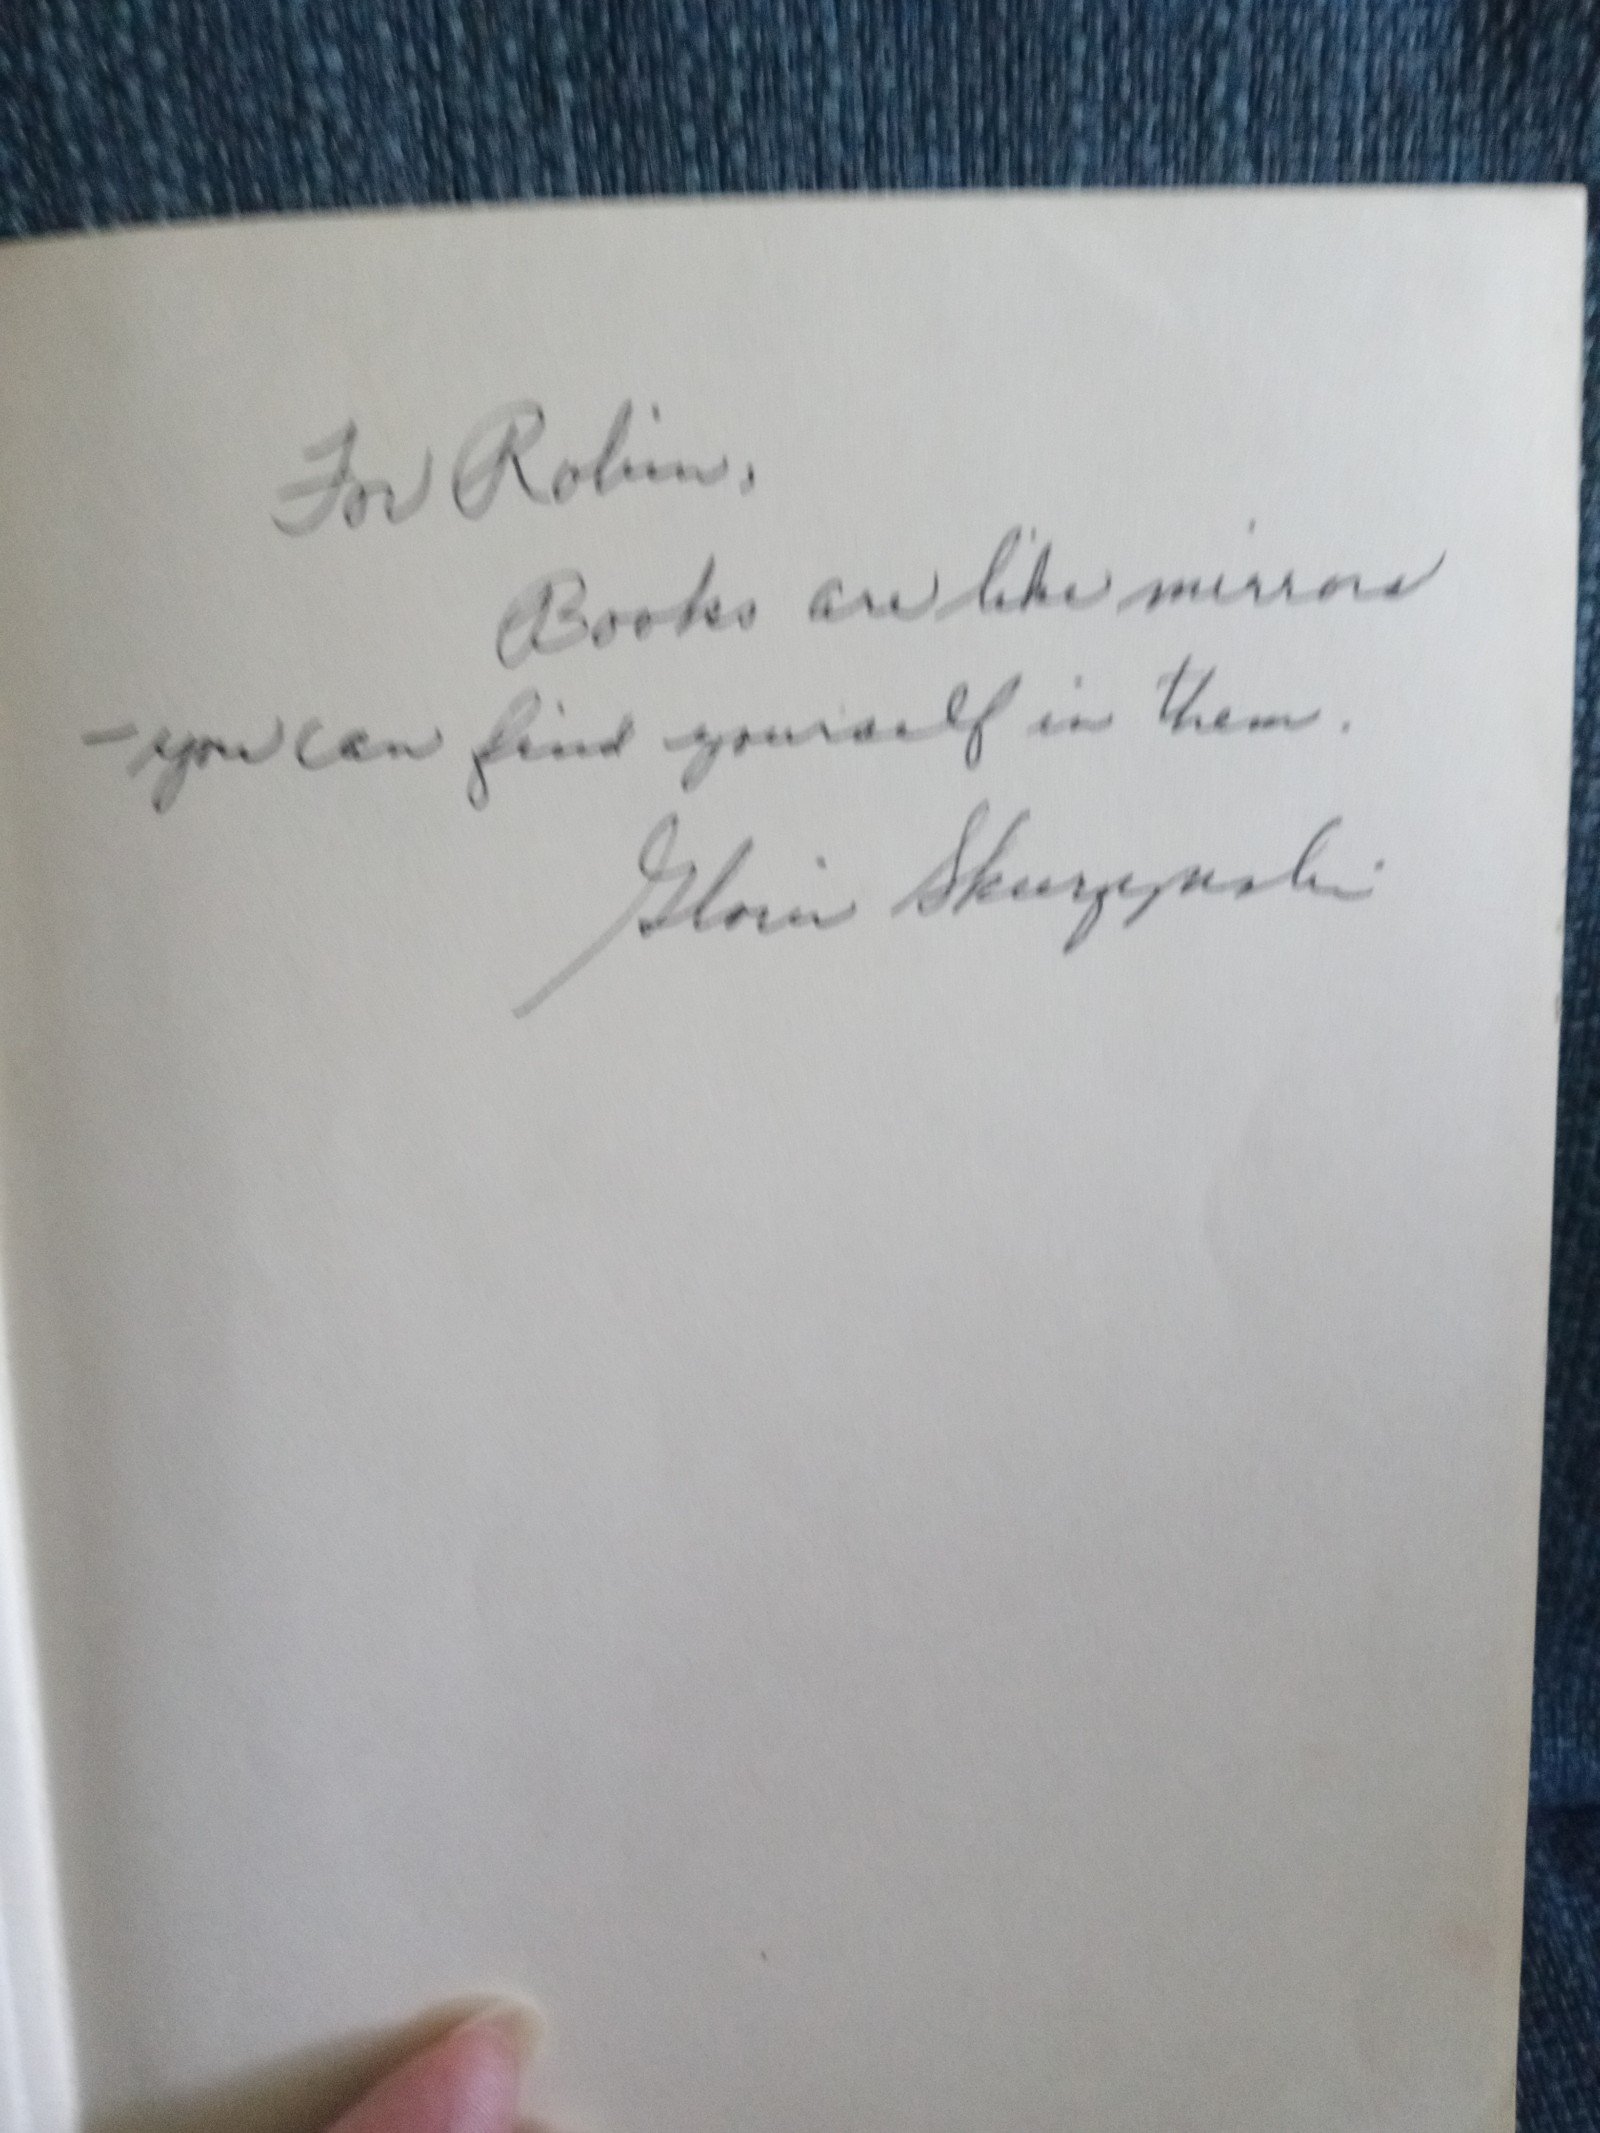 For Robin,
Books are like mirrors
- you can find yourself in them.
Gloria Skurzynski